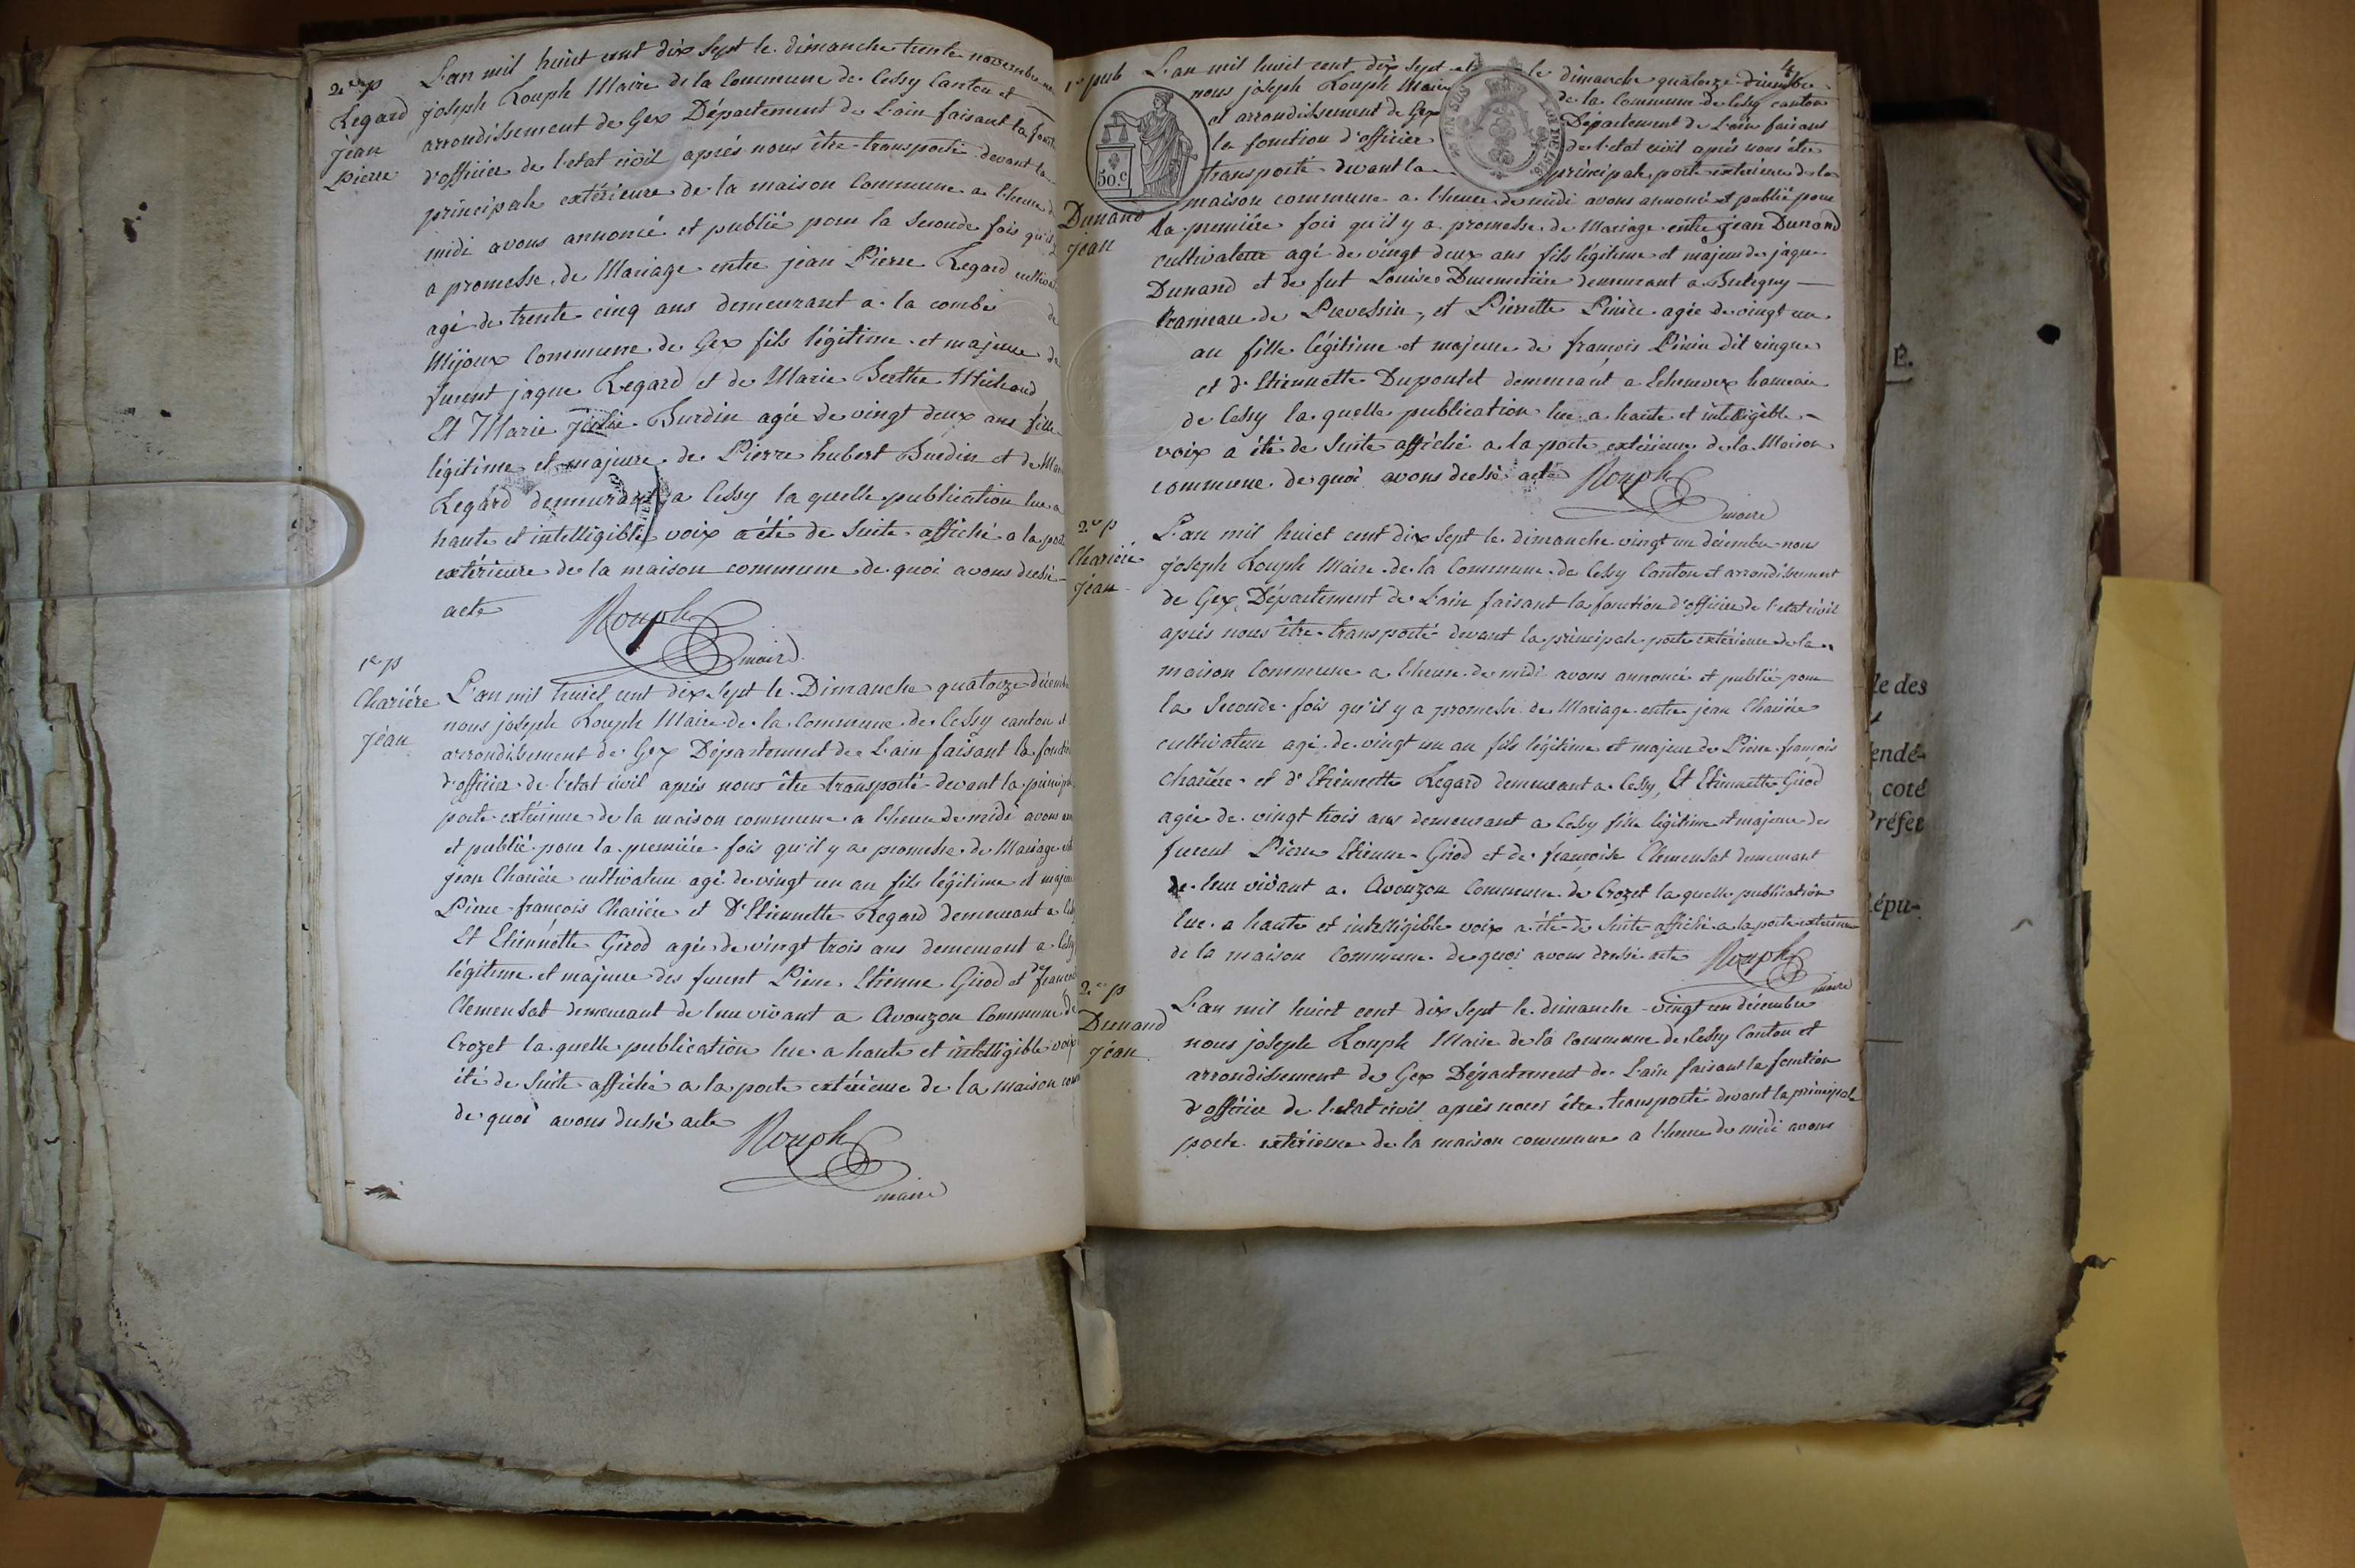 2e p
Regard
jean
Pierre
L'an mil huict cent dix sept le dimanche trente novembre
joseph Rouph Maire de la Commune de Cessy Canton et
arrondissement de Gex Département de L'ain faisant la
d'officier de l'etat civil aprés nous être transporté devant la
principale extérieure de la maison Commune a l'heure de
midi avons annoncé et publié pour la seconde fois qu'il
a promesse de Mariage entre jean Pierre Regard
agé de trente cinq ans demeurant a la combe de
Mijoux Commune de Gex fils légitime et majeur de
furent jaque Regard et de Marie Berthe Michaud
Et Marie julie Burdin agée de vingt deux ans fille
légitime et majeure de Pierre hubert Burdin et de
Regard demeurant a Cessy la quelle publication lue a
haute et intelligible voix a été de suite affiché a la
extérieure de la maison commune de quoi avons dressé
acte
Rouph
maire
1e p
Chariére
jean
L'an mil huict cent dix sept le Dimanche quatorze
nous joseph Rouph Maire de la Commune de Cessy canton et
arrondissement de Gex Département de L'ain faisant la
d'officier de l'etat civil aprés nous être transporté devant la
porte extérieure de la maison commune a l'heure de midi avons
et publié pour la premiére fois qu'il y a promesse de Mariage
jean Chariére cultivateur agé de vingt un an fils légitime et
Pierre françois Chariére et D'Etiennette Regard demeurant a
Et Etiennette Girod agée de vingt trois ans demeurant a
légitime et majeure des furent Pierre Etienne Girod et de
Clemensat demeurant de leur vivant a Avouzon Commune de
Crozet la quelle publication lue a haute et intelligible voix
été de suite affiché a la porte extérieure de la maison
de quoi avons dressé acte
Rouph
maire
4
1e pub
Dunand
jean
50.c
EN SUS
L'an mil huict cent dix sept et le dimanche quatorze
nous joseph Rouph Maire de la Commune de Cessy canton
et arrondissement de Gex Département de L'ain faisant
la fonction d'officier de l'etat civil aprés nous être
transporté devant la principale porte extérieure de la
maison commune a l'heure de midi avons annoncé et publié pour
la premiére fois qu'il y a promesse de Mariage entre jean Dunand
cultivateur agé de vingt deux ans fils légitime et majeur de jaque
Dunand et de fut Louise demeurant a Bretigny
hameau de Prevessin, et Pierrette agée de vingt un
an fille légitime et majeure de françois dit
et d'Etiennette Dupontet demeurant a hameau
de Cessy la quelle publication lue a haute et intelligible
voix a été de suite affiché a la porte extérieure de la Maison
commune de quoi avons dressé acte
Rouph
maire
2e p
Chariére
jean
L'an mil huict cent dix sept le dimanche vingt un décembre nous
joseph Rouph Maire de la Commune de Cessy Canton et arrondissement
de Gex Département de L'ain faisant la fonction d'officier de l'etat civil
aprés nous être transporté devant la principale porte extérieure de la
maison Commune a l'heure de midi avons annoncé et publié pour
la seconde fois qu'il y a promesse de Mariage entre jean Chariére
cultivateur agé de vingt un an fils légitime et majeur de Pierre françois
Chariére et d'Etiennette Regard demeurant a Cessy, Et Etiennette Girod
agée de vingt trois ans demeurant a Cessy fille légitime et majeure des
furent Pierre Etienne Girod et de françoise Clemensat demeurant
de leur vivant a Avouzon Commune de Crozet la quelle publication
lue a haute et intelligible voix a été de suite affiché a la porte extérieure
de la maison Commune de quoi avons dressé acte
Rouph
maire
2e p
Dunand
jean
L'an mil huict cent dix sept le dimanche vingt un décembre
nous joseph Rouph Maire de la Commune de Cessy Canton et
arrondissement de Gex Département de L'ain faisant la fonction
d'officier de l'etat civil aprés nous être transporté devant la principale
porte extérieure de la maison commune a l'heure de midi avons
E.
le des
endé-
coté
Préfet
Répu-